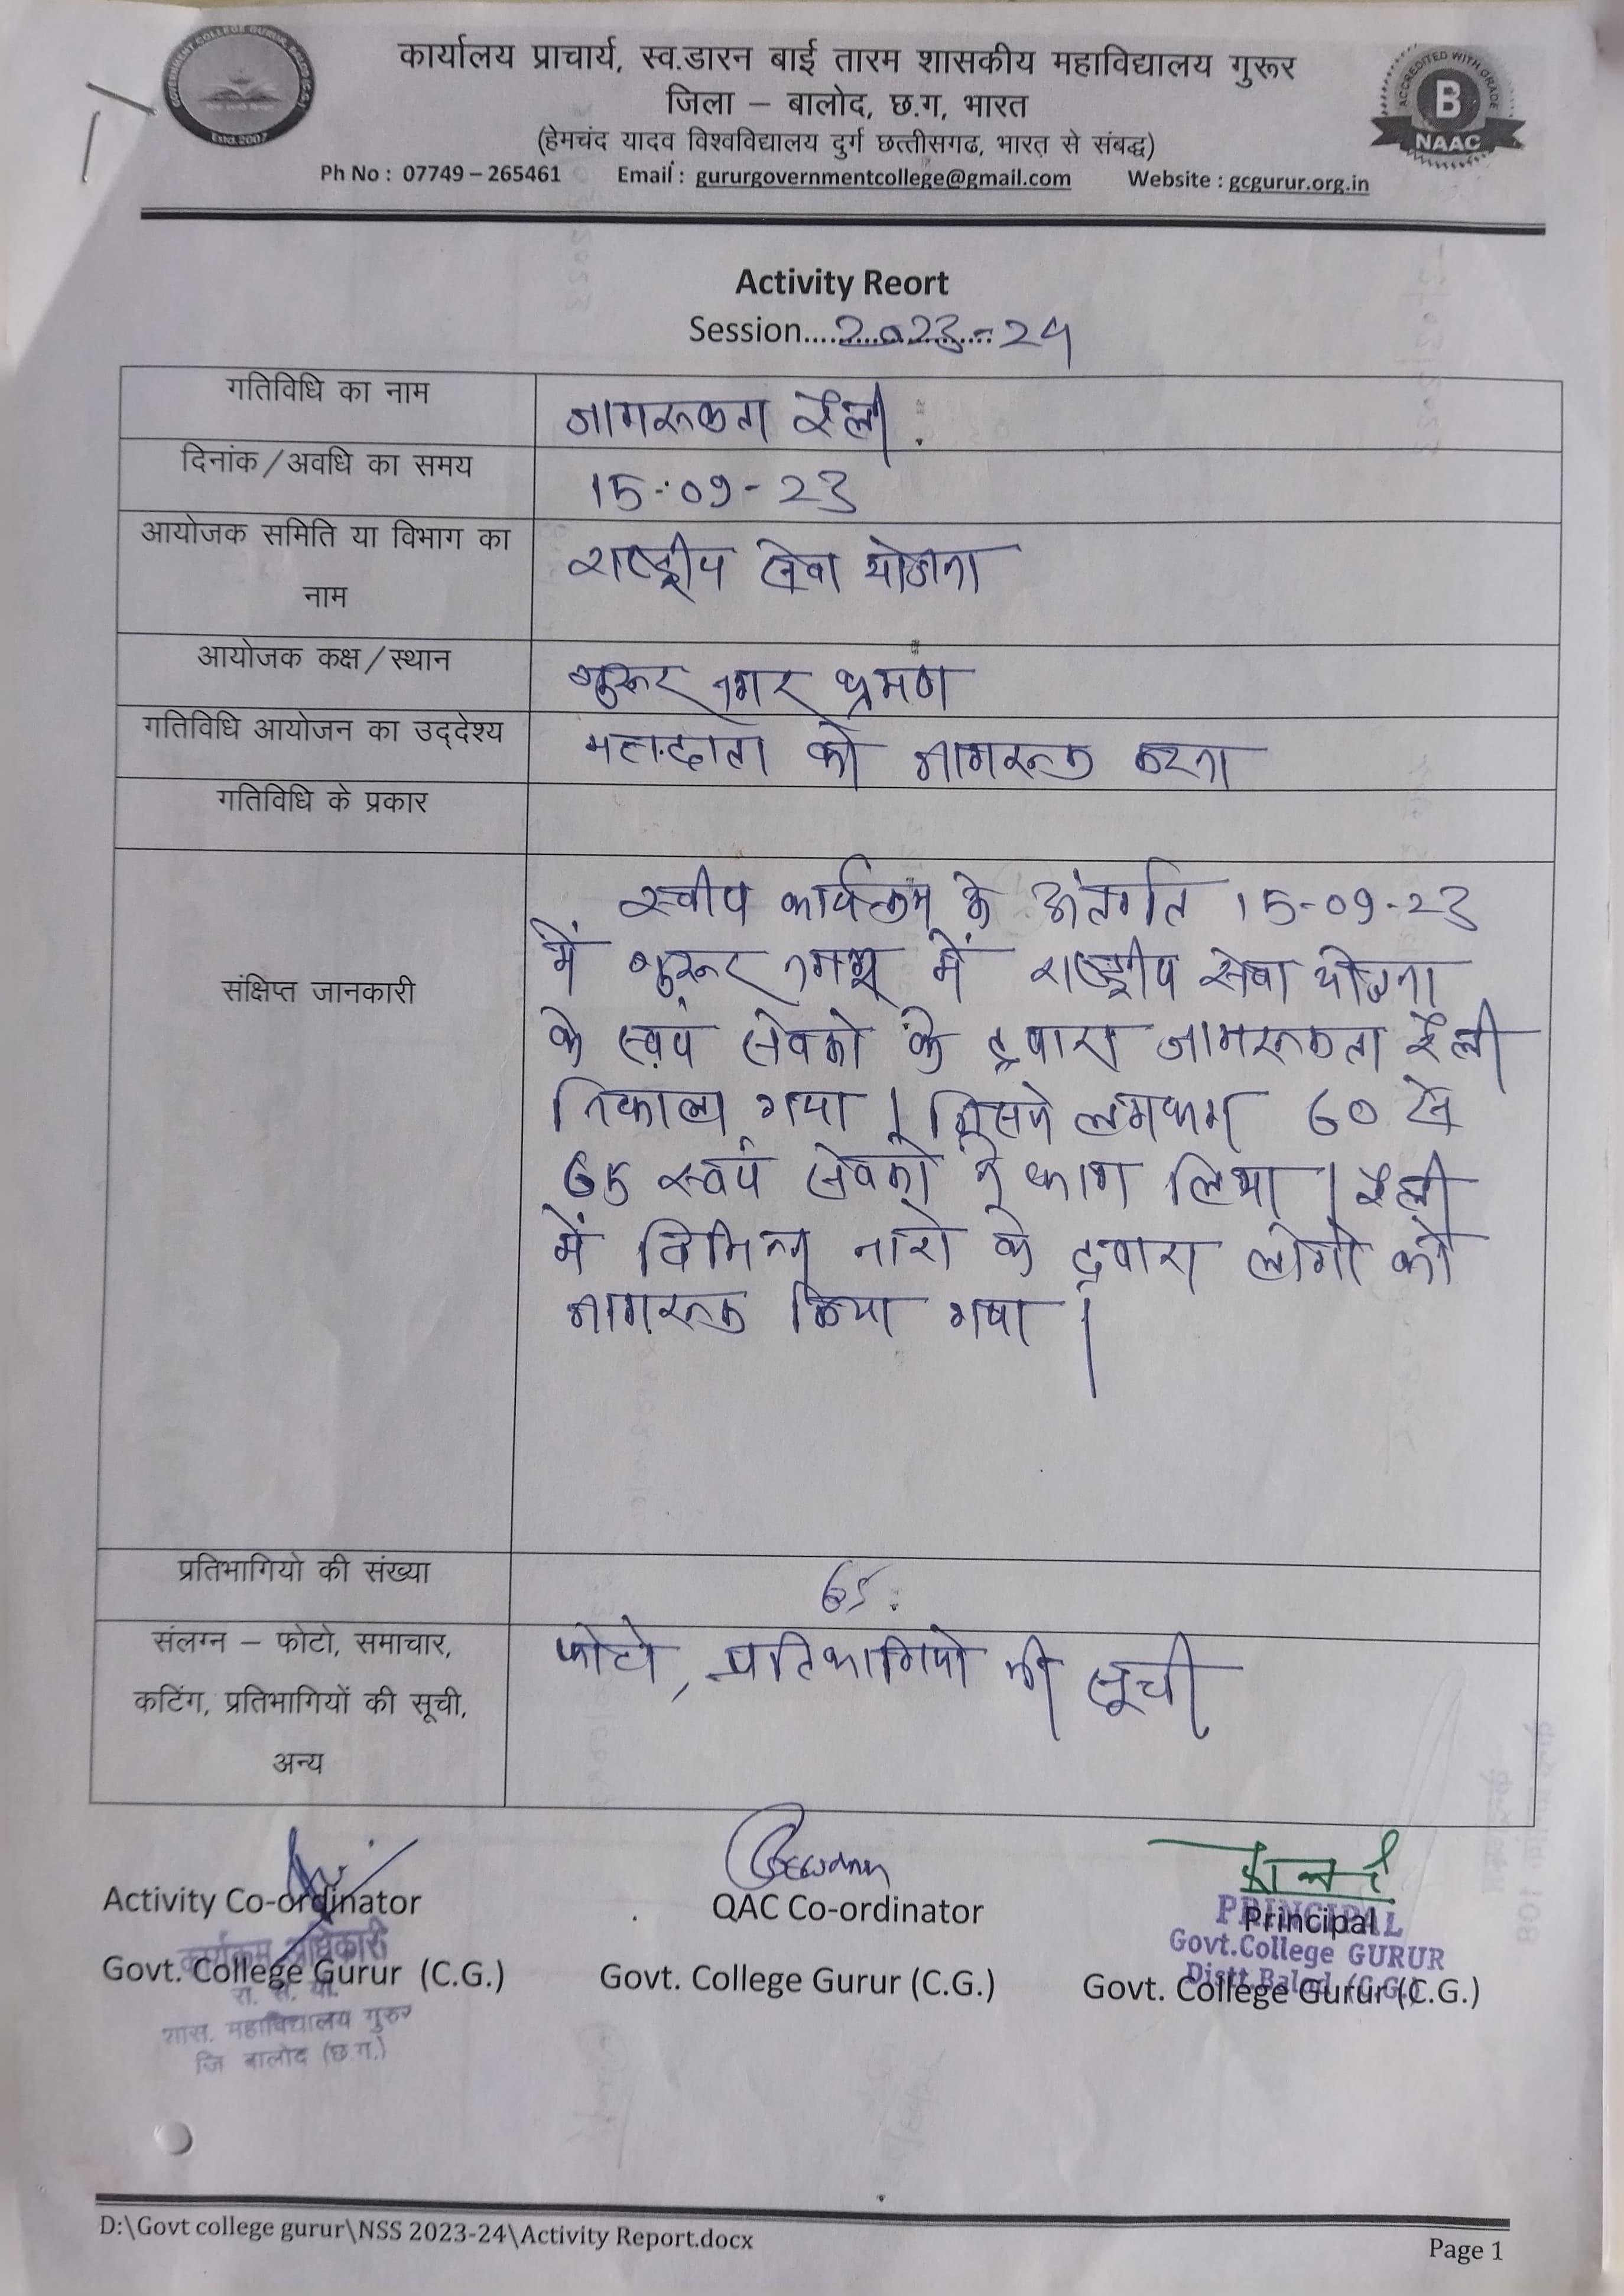 GOVERNMENT COLLEGE GURUR, BALOD (C.G.)
Estd. 2007
कार्यालय प्राचार्य, स्व.डारन बाई तारम शासकीय महाविद्यालय गुरूर
जिला – बालोद, छ.ग, भारत
(हेमचंद यादव विश्वविद्यालय दुर्ग छत्तीसगढ, भारत से संबद्ध)
Ph No : 07749 – 265461 Email : gururgovernmentcollege@gmail.com Website : gcgurur.org.in
ACCREDITED WITH GRADE
B
NAAC
Activity Reort
Session....2023-24
गतिविधि का नाम जागरूकता रैली
दिनांक/अवधि का समय 15-09-23
आयोजक समिति या विभाग का
नाम राष्ट्रीय सेवा योजना
आयोजक कक्ष/स्थान गुरूर नगर भ्रमण
गतिविधि आयोजन का उद्देश्य मतदाता को जागरूक करना
गतिविधि के प्रकार
संक्षिप्त जानकारी
स्वीप कार्यक्रम के अंतर्गत 15-09-23
में गुरूर नगर में राष्ट्रीय सेवा योजना
के स्वयं सेवको के द्वारा जागरूकता रैली
निकाला गया । जिसमे लगभग 60 से
65 स्वयं सेवको ने भाग लिया । रैली
में विभिन्न नारो के द्वारा लोगो को
जागरूक किया गया ।
प्रतिभागियो की संख्या 65
संलग्न – फोटो, समाचार,
कटिंग, प्रतिभागियों की सूची,
अन्य
फोटो, प्रतिभागियो की सूची
Activity Co-ordinator QAC Co-ordinator Principal
Govt. College Gurur (C.G.) Govt. College Gurur (C.G.) Govt. College Gurur (C.G.)
कार्यक्रम अधिकारी
रा. से. यो.
शास. महाविद्यालय गुरुर
जि बालोद (छ.ग.)
PRINCIPAL
Govt.College GURUR
Distt.Balod (C.G.)
D:\Govt college gurur\NSS 2023-24\Activity Report.docx
Page 1